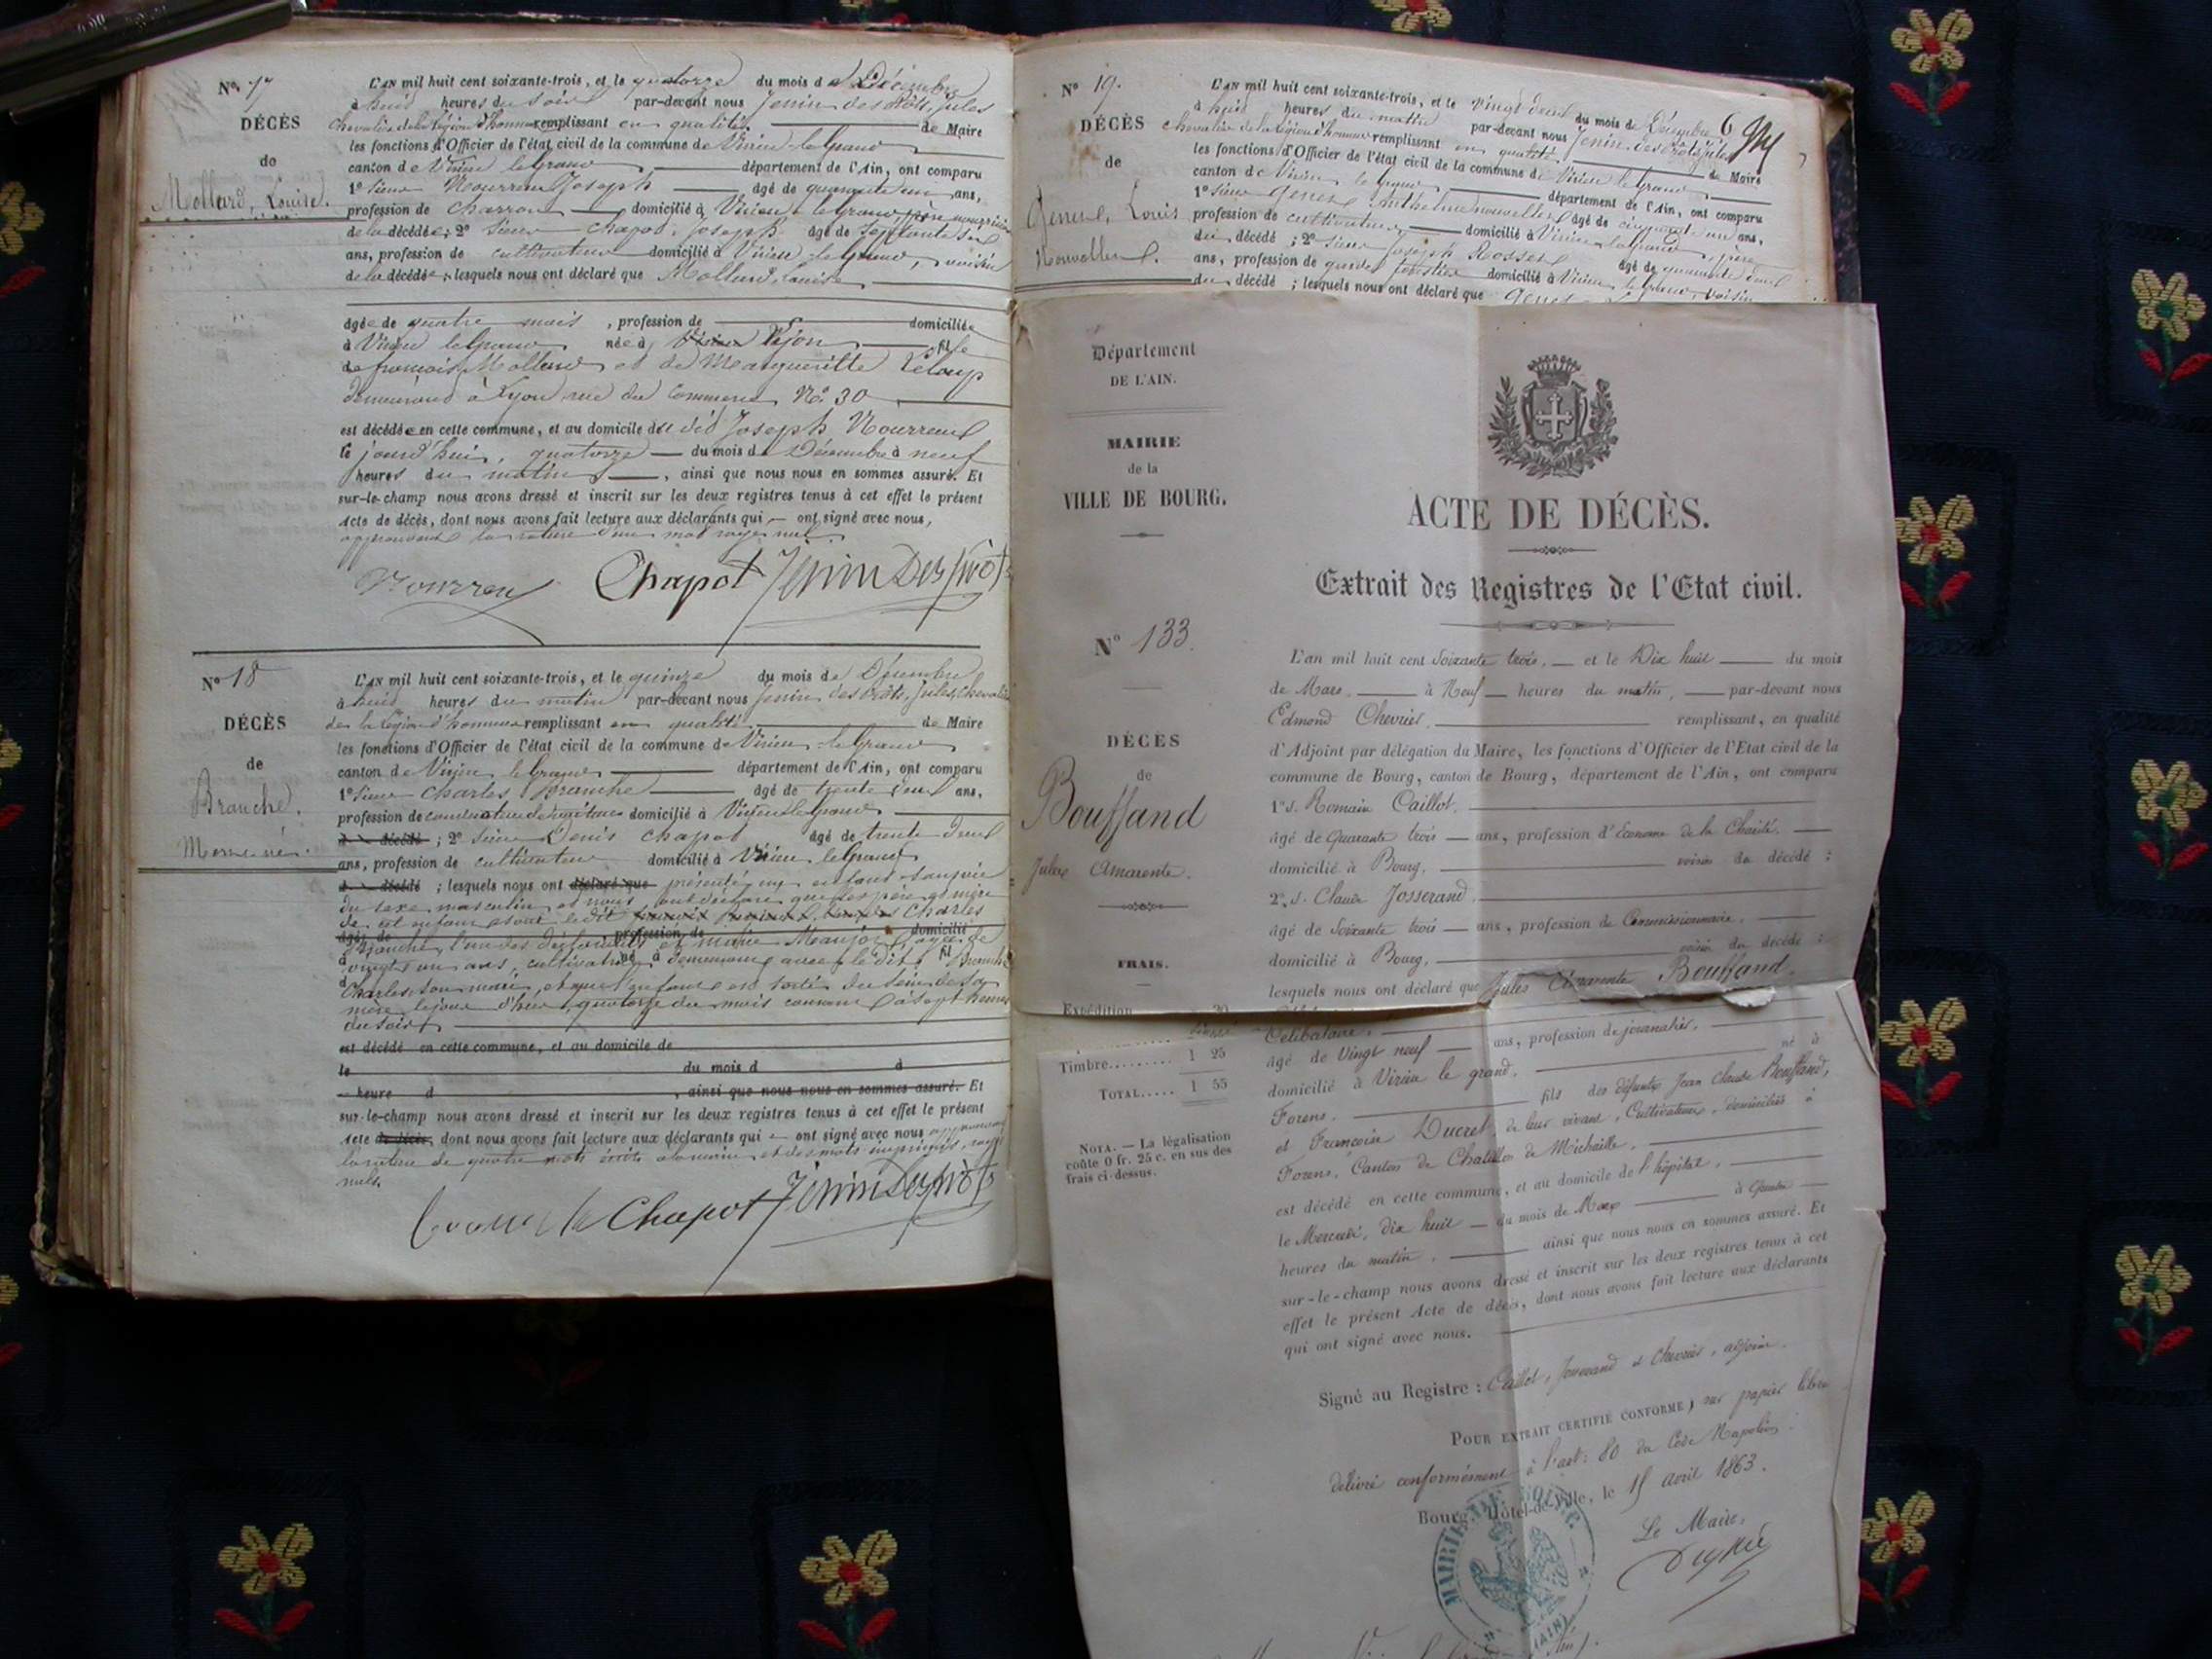 Nº 17
DÉCÈS
de
Mollard, Louise.
L'AN mil huit cent soixante-trois, et le quatorze du mois de Décembre
à huit heures du soir par-devant nous Jenin des Prôts, Jules
chevalier de la Légion d'honneur remplissant en qualité de Maire
les fonctions d'Officier de l'état civil de la commune de Virieu le Grand
canton de Virieu le Grand département de l'Ain, ont comparu
1º Sieur Joseph âgé de quarante un ans,
profession de charron domicilié à Virieu le Grand, père nourricier
de la décédée ; 2º Sieur Chapot, Joseph âgé de septante six
ans, profession de cultivateur domicilié à Virieu le Grand, voisin
de la décédée ; lesquels nous ont déclaré que Mollard, Louise
âgée de quatre mois, profession de domiciliée
à Virieu le Grand née à Lyon fille
de françois Mollard et de Margueritte Leloup
demeurant à Lyon rue du Commerce Nº 30
est décédée en cette commune, et au domicile du dit Joseph
le jourd'hui, quatorze du mois de Décembre à neuf
heures du matin, ainsi que nous nous en sommes assuré. Et
sur-le-champ nous avons dressé et inscrit sur les deux registres tenus à cet effet le présent
Acte de décès, dont nous avons fait lecture aux déclarants qui ont signé avec nous,
approuvant la rature d'un mot rayé nul
Chapot Jenin Des Prôts
Nº 18
DÉCÈS
de
Branche.
Mort-né.
L'AN mil huit cent soixante-trois, et le quinze du mois de Décembre
à huit heures du matin par-devant nous Jenin des Prôts, Jules, chevalier
de la Légion d'honneur remplissant en qualité de Maire
les fonctions d'Officier de l'état civil de la commune de Virieu le Grand
canton de Virieu le Grand département de l'Ain, ont comparu
1º Sieur Charles Branche âgé de trente deux ans,
profession de domicilié à Virieu le Grand
décédé ; 2º Sieur Denis Chapot âgé de trente deux
ans, profession de cultivateur domicilié à Virieu le Grand
décédé ; lesquels nous ont déclaré que présenté un enfant sans vie
du sexe masculin et nous ont déclaré que les père et mère
de cet enfant sont le dit Charles
âgé de, profession de domicilié
Branche, l'un des déclarants et Marie âgée de
vingt un ans, cultivatrice, demeurant avec le dit Branche
Charles son mari, et que l'enfant est sorti du sein de sa
mère le jour d'hier, quatorze du mois courant à sept heures
du soir
est décédé en cette commune, et au domicile de
le du mois d à
heure d, ainsi que nous nous en sommes assuré. Et
sur-le-champ nous avons dressé et inscrit sur les deux registres tenus à cet effet le présent
Acte de décès, dont nous avons fait lecture aux déclarants qui ont signé avec nous approuvant
la rature de quatre mots écrits à la main et des mots imprimés, rayés
nuls.
Chapot Jenin Des Prôts
Nº 19.
DÉCÈS
de
Genest, Louis
L'AN mil huit cent soixante-trois, et le vingt deux du mois de Décembre
6
à huit heures du matin par-devant nous Jenin des Prôts, Jules
chevalier de la Légion d'honneur remplissant en qualité de Maire
les fonctions d'Officier de l'état civil de la commune de Virieu le Grand
canton de Virieu le Grand département de l'Ain, ont comparu
1º Sieur Genest Anthelme âgé de cinquante un ans,
profession de cultivateur domicilié à Virieu le Grand, père
du décédé ; 2º Sieur Joseph Rosset âgé de quarante deux
ans, profession de garde forestier domicilié à Virieu le Grand, voisin
du décédé ; lesquels nous ont déclaré que Genest
Département
DE L'AIN.
MAIRIE
de la
VILLE DE BOURG.
Nº 133.
DÉCÈS
de
Bouffand
Jules Amarente.
FRAIS.
Expédition 30
Timbre........ 1 25
TOTAL..... 1 55
NOTA. — La légalisation
coûte 0 fr. 25 c. en sus des
frais ci-dessus.
ACTE DE DÉCÈS.
Extrait des Registres de l'Etat civil.
L'an mil huit cent Soixante trois, et le Dix huit du mois
de Mars à Neuf heures du matin, par-devant nous
Edmond Chevrier remplissant, en qualité
d'Adjoint par délégation du Maire, les fonctions d'Officier de l'Etat civil de la
commune de Bourg, canton de Bourg, département de l'Ain, ont comparu
1º S. Romain Caillot.
âgé de Quarante trois ans, profession d'Econome de la Charité.
domicilié à Bourg, voisin du décédé :
2º S. Claude Josserand
âgé de Soixante trois ans, profession de Commissionnaire.
domicilié à Bourg, voisin du décédé :
lesquels nous ont déclaré que Jules Amarente Bouffand.
Célibataire.
âgé de Vingt neuf ans, profession de journalier.
domicilié à Virieu le grand. né à
Forens. fils des défunts Jean Claude Bouffand,
et Françoise Ducret, de leur vivant, Cultivateurs, domiciliés à
Forens, Canton de Chatillon de Michaille.
est décédé en cette commune, et au domicile de l'hôpital,
le Mercredi, dix huit du mois de Mars à Quatre
heures du matin. ainsi que nous nous en sommes assuré. Et
sur-le-champ nous avons dressé et inscrit sur les deux registres tenus à cet
effet le présent Acte de décès, dont nous avons fait lecture aux déclarants
qui ont signé avec nous.
Signé au Registre : Caillot, Josserand et Chevrier, adjoint.
POUR EXTRAIT CERTIFIÉ CONFORME, sur papier libre
délivré conformément à l'art. 80 du Code Napoléon.
Bourg, Hôtel-de-Ville, le 15 avril 1863.
Le Maire,
MAIRIE DE BOURG
(AIN)